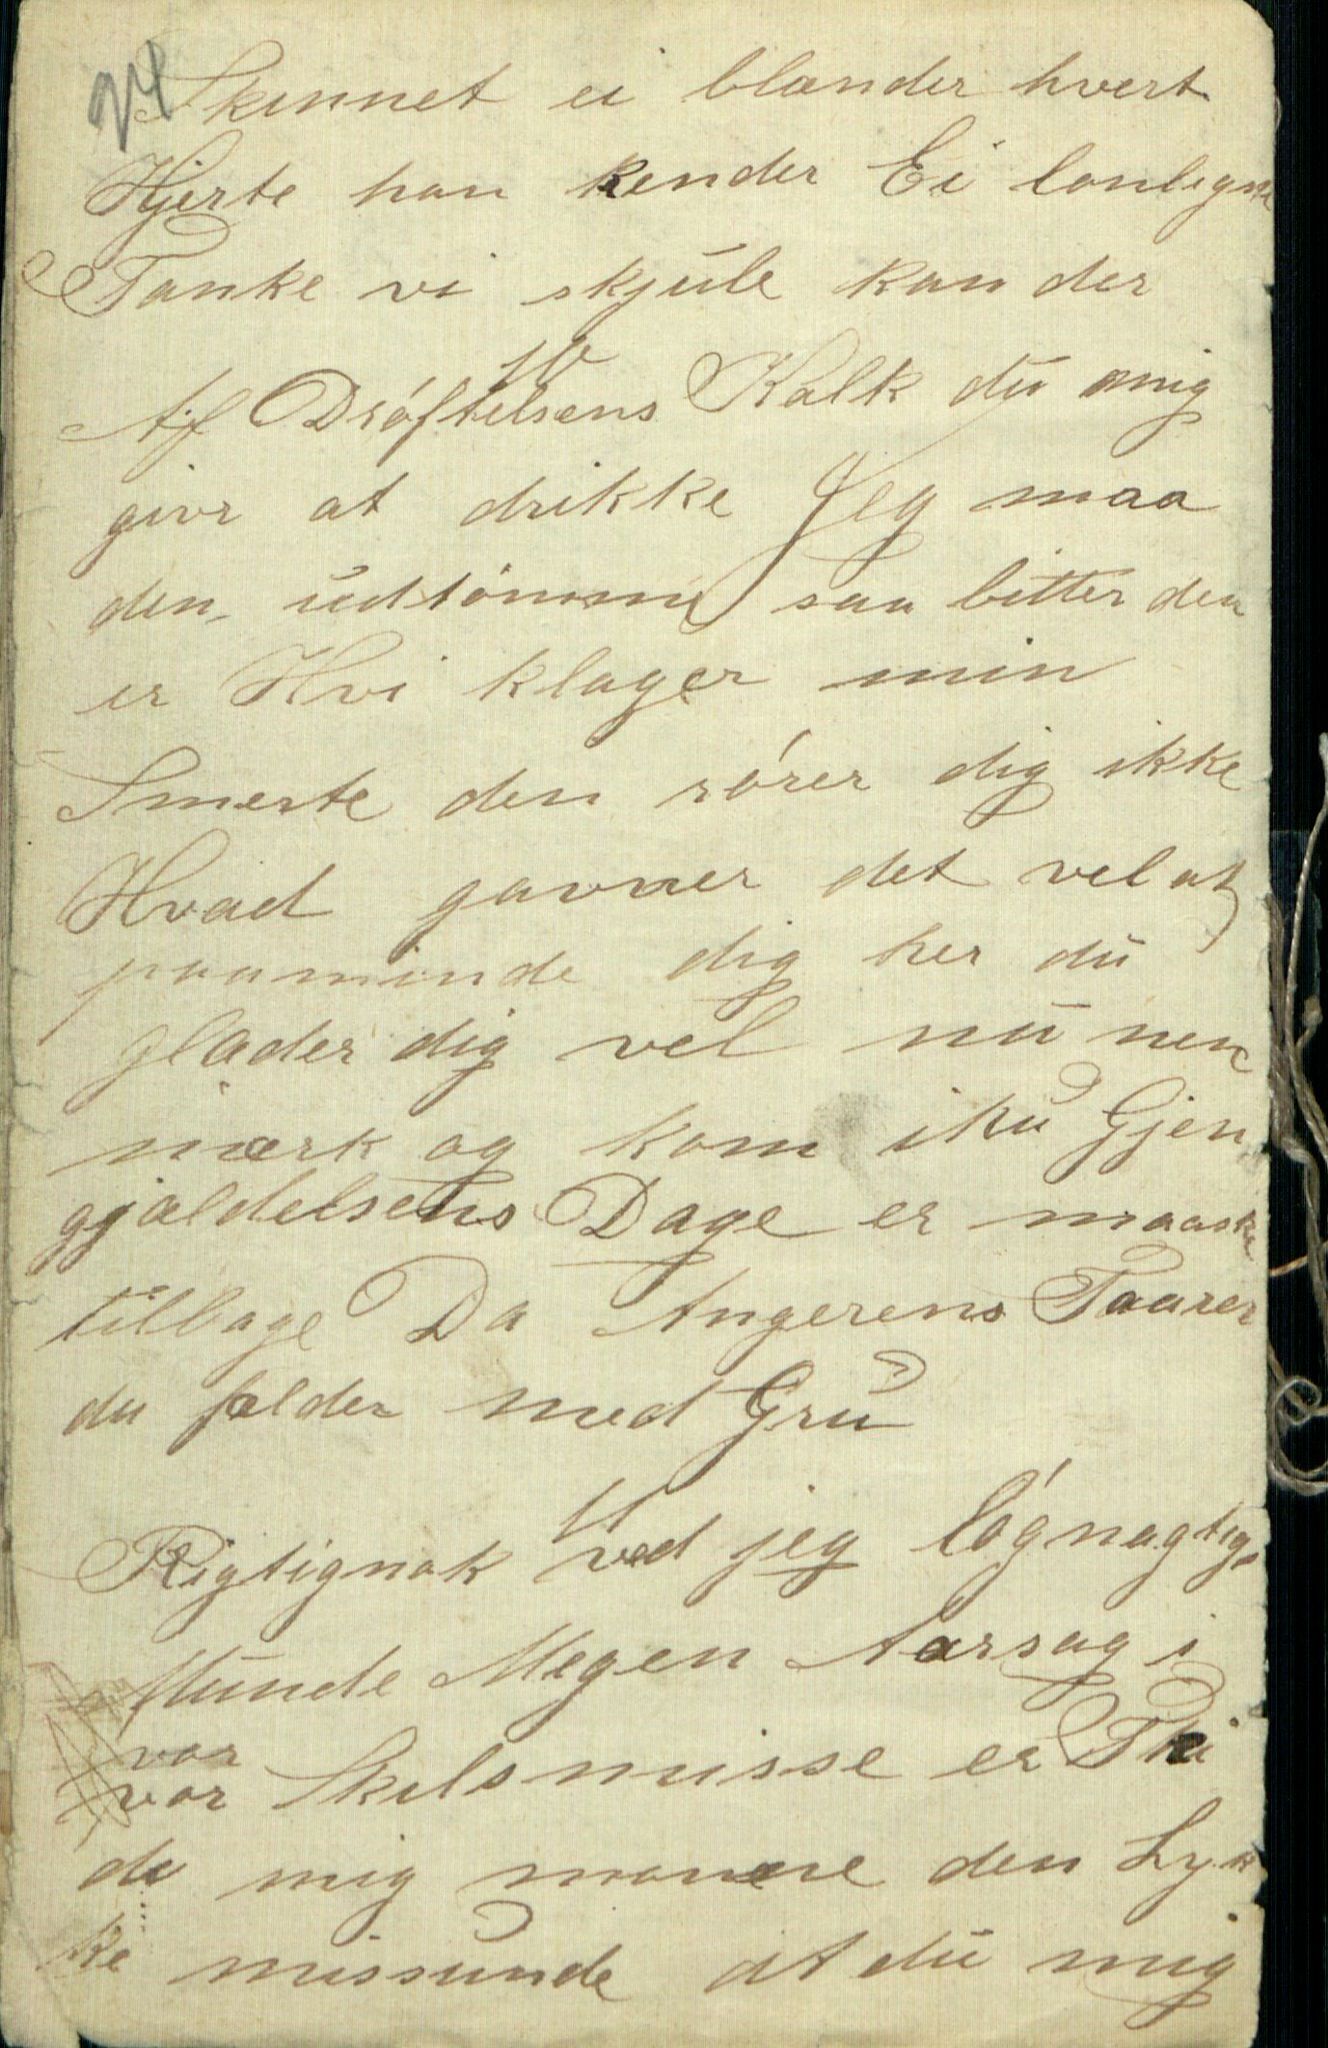 24
Skinnet ei blander hvert
Hjerte han kender Ei lonlegne
Tanke vi skjule kan der
10
Af Dróftelsens Kalk du mig
givr at drikke Jeg maa
den udtómme saa bitter den
er Hvi klager min
Smerte den rórer dig ikke
Hvad gavner det vel at
paaminde dig her du
glader dig vel nu nen
mærk og kom ihu Gjen
gjældelsens Dage er maaske
tilbage Da Angerens Taarer
du fælder med Gru
11
Rigtignok ved jeg lógnagtige
Munde Megen Aarsag i
vor
vor Skilsmisse er Thi
de mig monne den Lyk
ke missunde at du mig